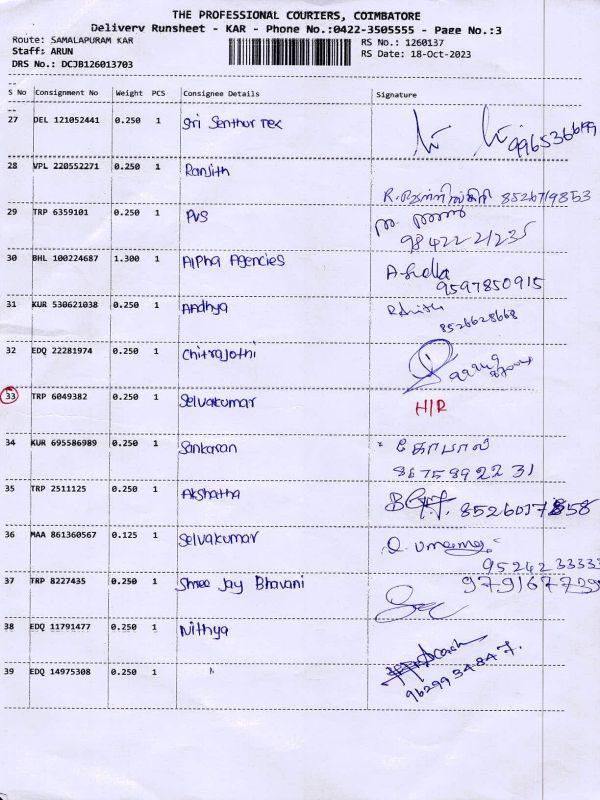 THE PROFESSIONAL COURIERS, COIMBATORE
Delivery Runsheet - KAR - Phone No.:0422-3505555 - Page No.:3
Route: SAMALAPURAM KAR
RS No.: 1260137
Staff: ARUN
RS Date: 18-Oct-2023
DRS No.: DCJB126013703
S No Consignment No Weight PCS Consignee Details Signature
27 DEL 121052441 0.250 1 Sri Senthur Tex
28 VPL 220552271 0.250 1 Ranjith
R. 8526719853
29 TRP 6359101 0.250 1 PVS
9842221235
30 BHL 100224687 1.300 1 Alpha Agencies
9597850915
31 KUR 530621038 0.250 1 Aadhya
8526628668
32 EDQ 22281974 0.250 1 Chitrajothi
33 TRP 6049382 0.250 1 Selvakumar H/R
34 KUR 695586989 0.250 1 Sankaran கோபால்
8675892231
35 TRP 2511125 0.250 1 Akshatha
36 MAA 861360567 0.125 1 Selvakumar
9524233333
37 TRP 8227435 0.250 1 Shree Jay Bhavani
38 EDQ 11791477 0.250 1 Nithya
39 EDQ 14975308 0.250 1 "
9629934847.